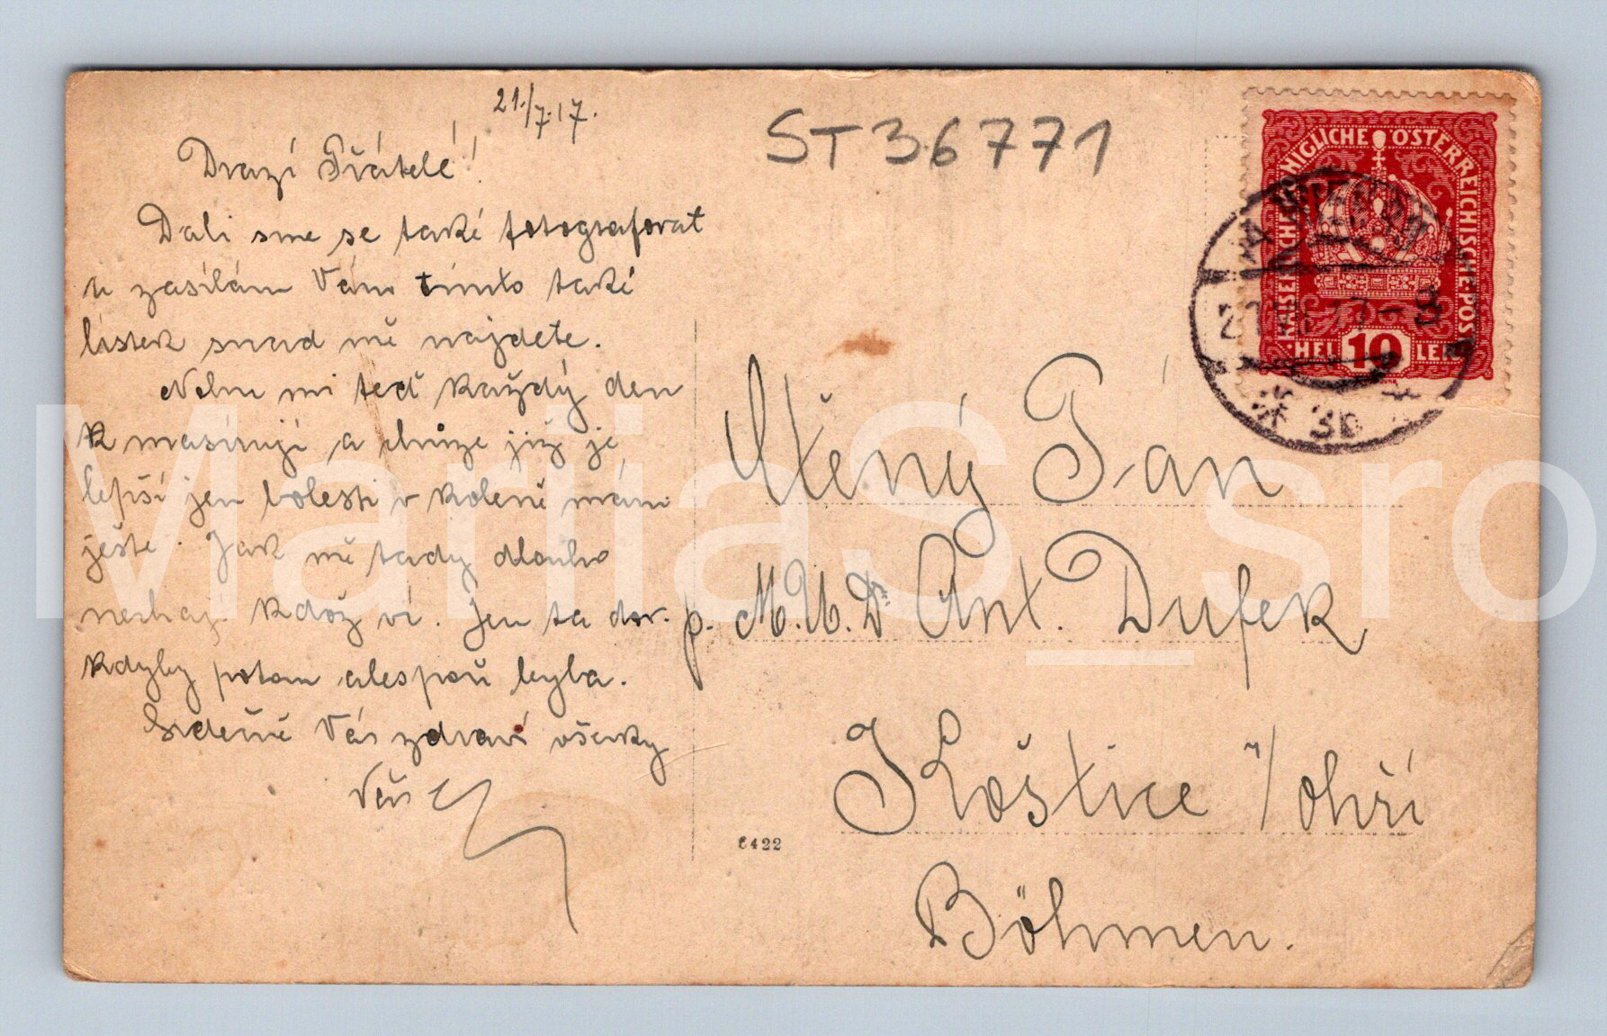 21./7.17.
Drazí Přátelé!
Dali sme se také fotografovat
a zasílám Vám tímto také
lístek snad mě najdete.
Nohu mi teď každý den
masírují a chůze již je
lepší jen bolesti v koleně mám
ještě. Jak mě tady dlouho
nechaj. kdož ví. Jen ta dov.
kdyby potom alespoň byla.
Srdečně Vás zdraví všecky
Váš
ST 36771
KAISERLICHE KÖNIGLICHE ÖSTERREICHISCHE POST
HELLER 10
WIEN
Ctěný Pán
p. M.U.Dr. Ant. Dufek
Koštice n/ohří
Böhmen.
6422
MariiaS_sro